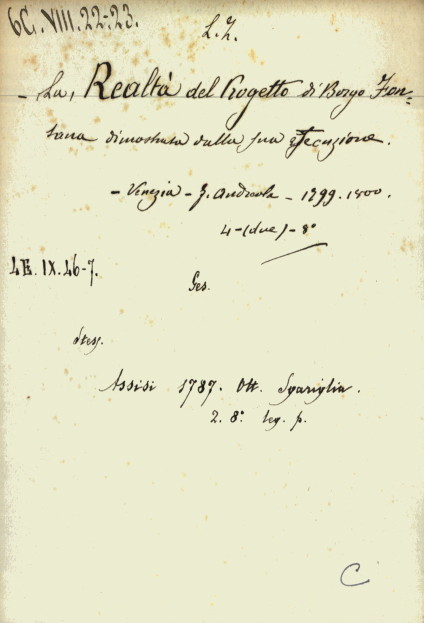 6C. VIII. 22-23.
L. Z.
- La, Realtà del Progetto di Borgo Fon-
tana dimostrata dalla sua Esecuzione.
- Venezia - F. Andreola - 1799. 1800.
4 - (due) - 8°
4E. IX. 46-7.
Ges.
stess.
Assisi 1787. Ott. Sgariglia.
2. 8°. leg. p.
C